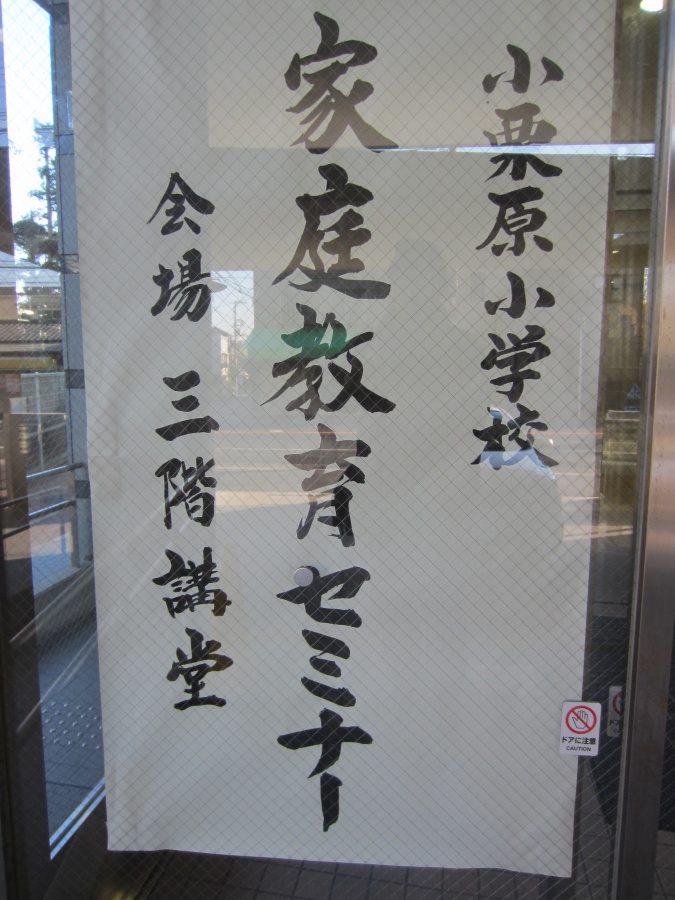 小栗原小学校
家庭教育セミナー
会場 三階講堂
ドアに注意
CAUTION